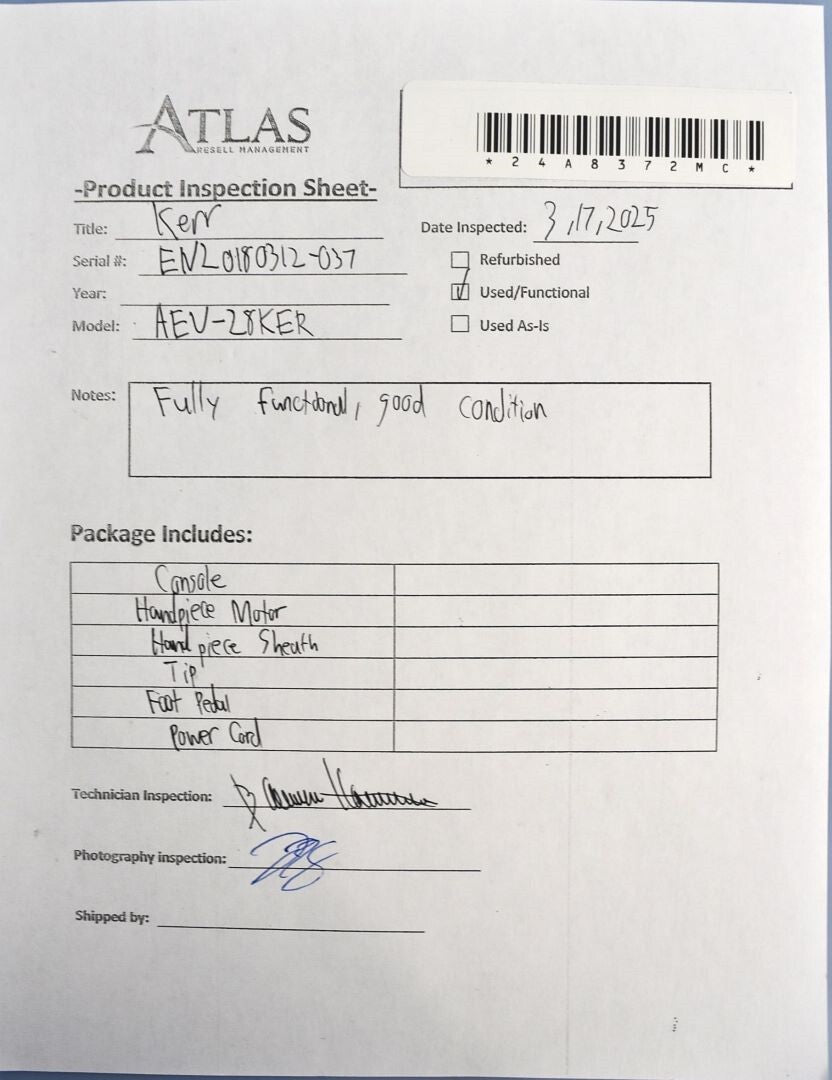 ATLAS
RESELL MANAGEMENT
*24A8372MC*
-Product Inspection Sheet-
Title: Kerr
Date Inspected: 3,17,2025
Serial #: EN20180312-037
Refurbished
Year:
Used/Functional
Model: AEV-28KER
Used As-Is
Notes: Fully functional, good condition
Package Includes:
Console
Handpiece Motor
Hand piece Sheath
Tip
Foot Pedal
Power Cord
Technician Inspection:
Photography inspection:
Shipped by: